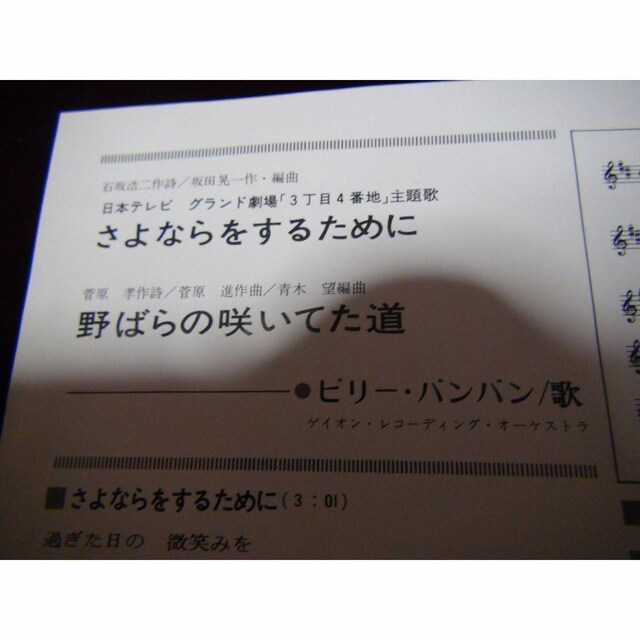 石坂浩二作詩／坂田晃一作・編曲
日本テレビ　グランド劇場「3丁目4番地」主題歌
さよならをするために
菅原　孝作詩／菅原　進作曲／青木　望編曲
野ばらの咲いてた道
●ビリー・バンバン/歌
ケイオン・レコーディング・オーケストラ
■さよならをするために(3：01)
過ぎた日の　微笑みを